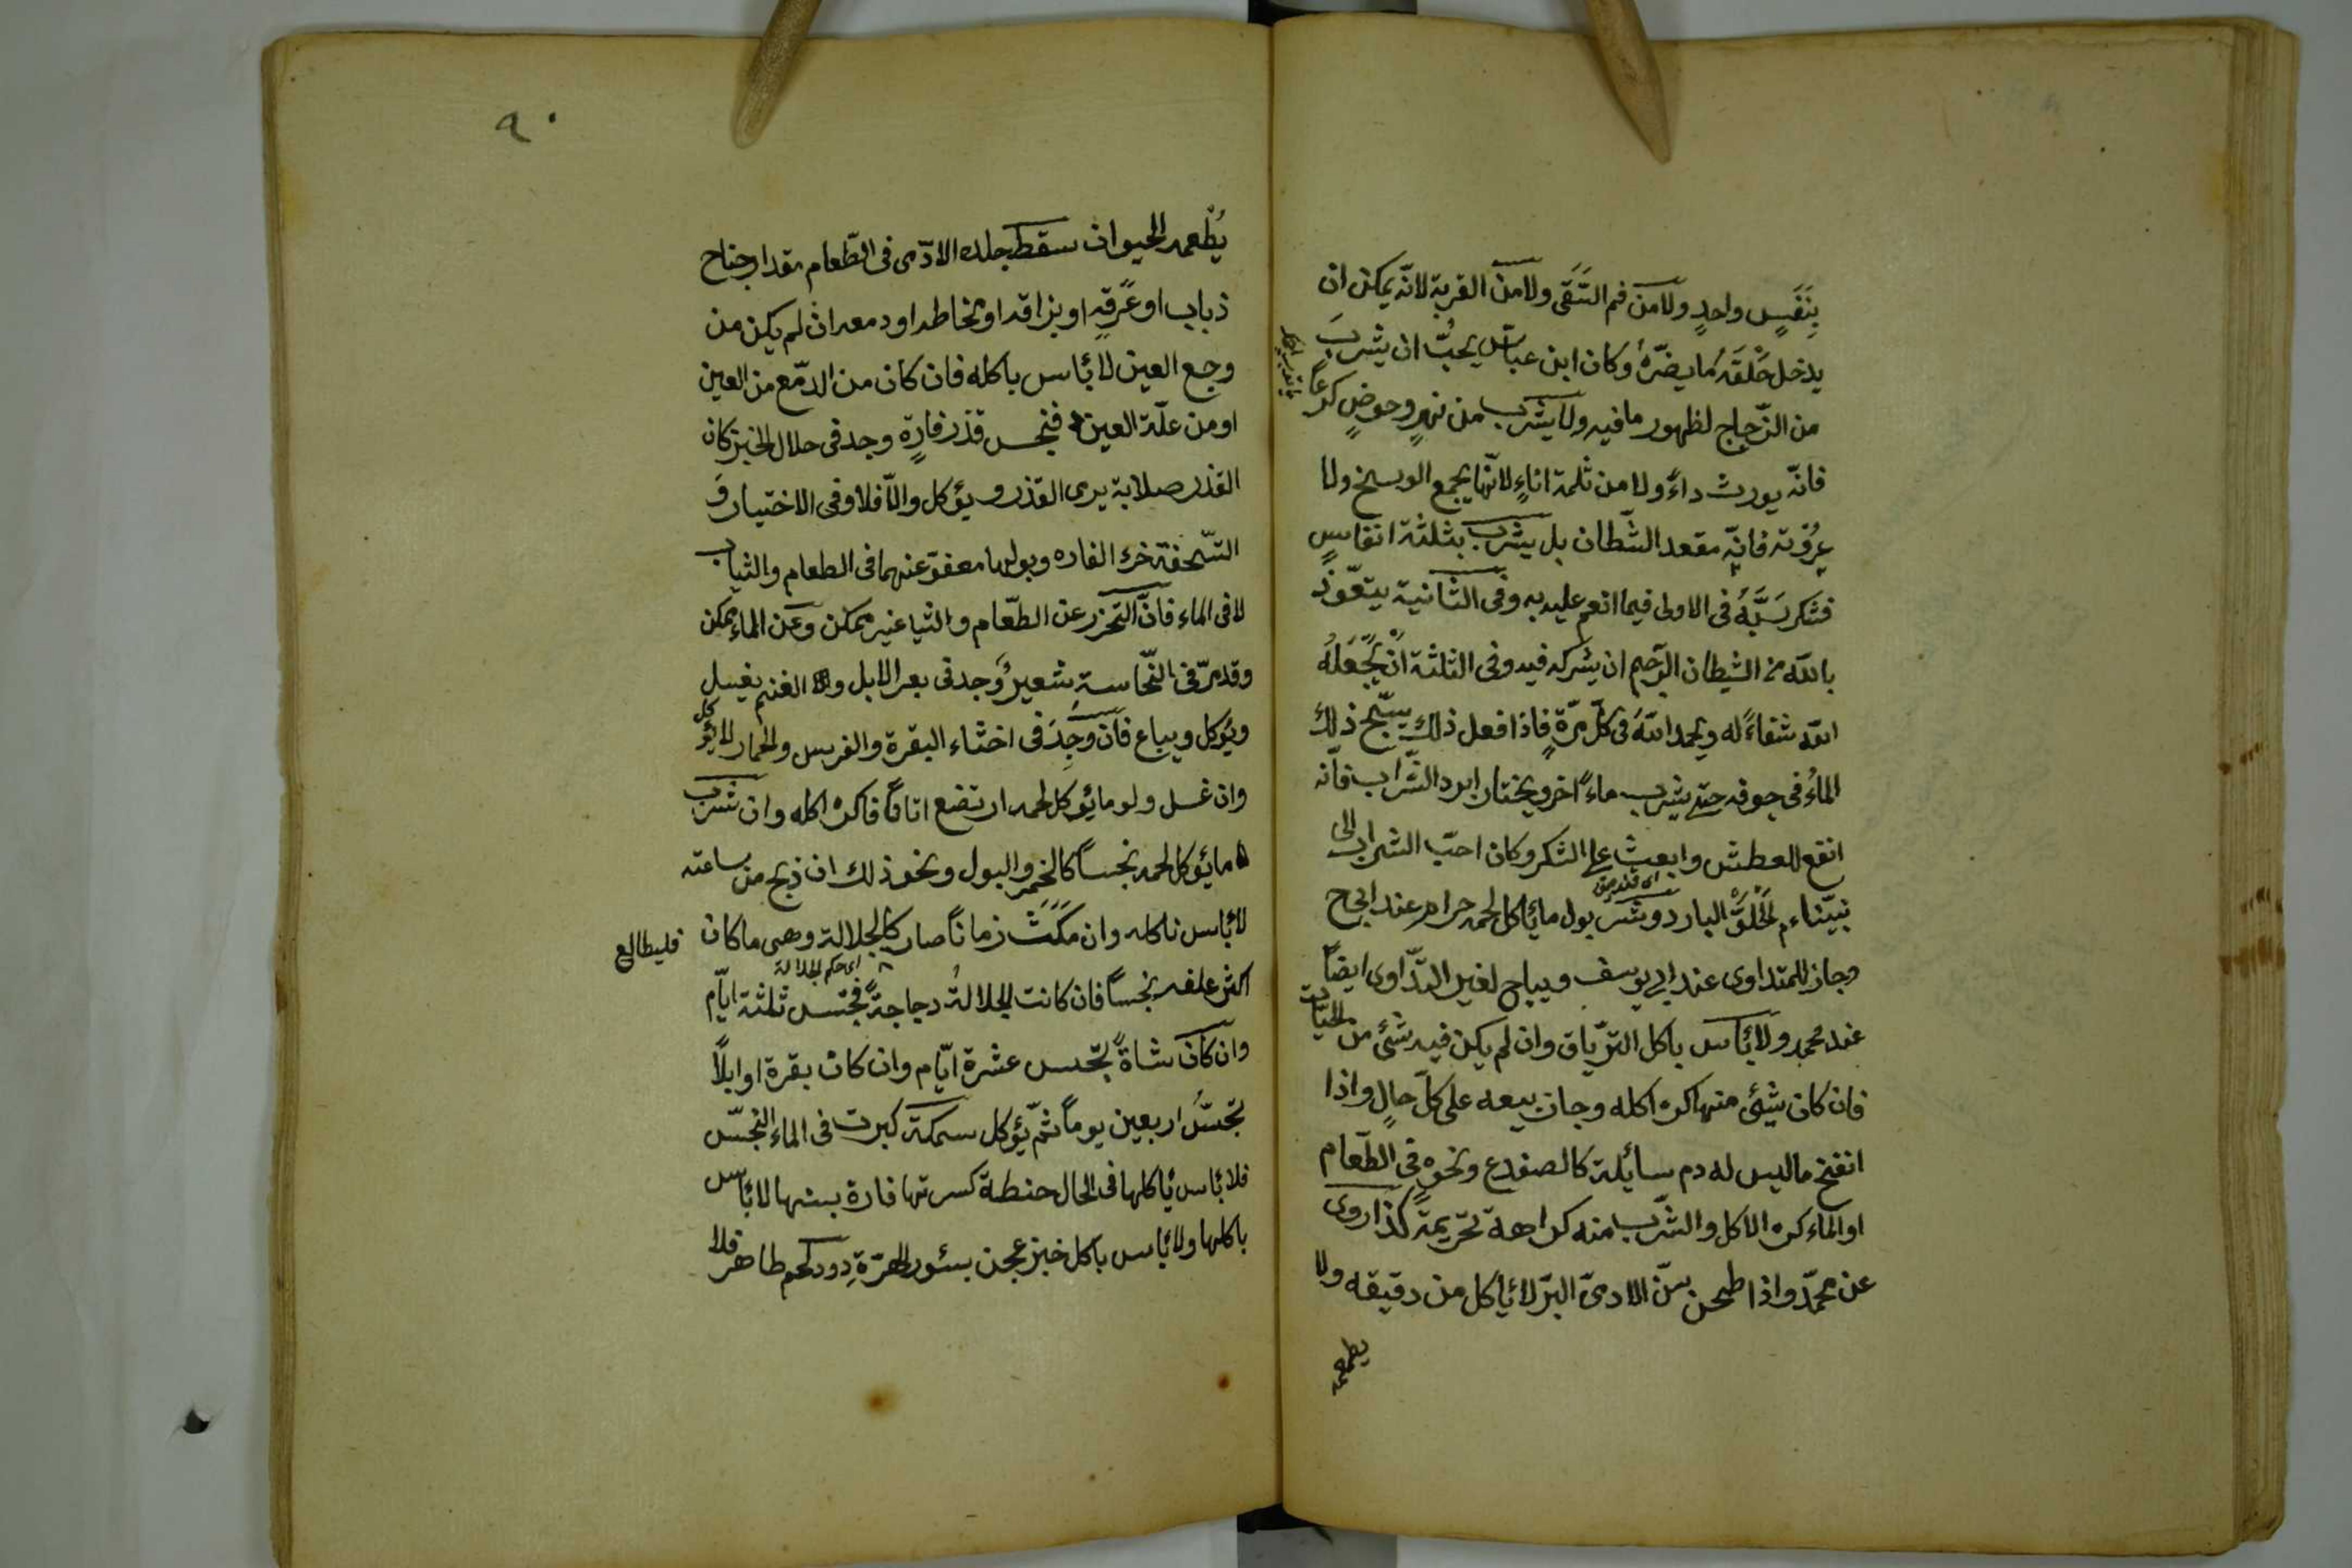 بِنَفَسٍ واحدٍ ولا من فم السّقى ولا من القربة لانّه يمكن ان
يدخل حَلْقَه ما يضرّه وكان ابن عبّاس يحبّ ان يشربَ
من الزّجاج لظهور ما فيه ولا يشرب من نهرٍ وحوضٍ كرعاً
فانّه يورث داءً ولا من ثلمة اناءٍ لانّها يجمع الوسخ ولا
عُرْوَته فانّه مقعد الشّطان بل يشرب بثلثة انفاسٍ
فشكر ربَّهُ فى الاولى فيما انعم عليه به وفى الثانية يتعوّذ
بالله من الشيطان الرّجيم ان يشركه فيه وفى الثلثة ان يَجْعَلَهُ
الله شفاءً له ويحمد اللّهَ فى كلّ مرّةٍ فاذا فعل ذلك يسبّح ذلك
الماءُ فى جوفه حتى يشرب ماءً اخر ويختار ابرد الشّراب فانّه
انقع للعطش وابعث على الشكر وكان احبّ الشراب الى
نبيّنا عم الحُلْوُ البارد وشرب بول ما يأكل لحمه حرام عند ابى ح
وجاز للمتداوى عند ابى يوسف ويباح لغير التّداوى ايضاً
عند محمد ولا بأس باكل التريّاق وان لم يكن فيه شئ من الحيّات
فان كان شئى منها كره اكله وجاز بيعه على كلّ حالٍ واذا
انفتخ ما ليس له دم سائلة كالضفدع ونحوه فى الطّعام
او الماء كره الاكل والشّرب منه كراهة تحريمةً كذا روى
عن محمّد واذا طحن سنّ الادمىّ البرّ لا يأكل من دقيقه ولا
يطعمه
٩٠
يُطْعمه الحيوان سقط جلد الادمى فى الطّعام مقدار جناح
ذباب او عَرقِهِ او بزاقه او مخاطه او دمعه ان لم يكن من
وجع العين لا بأس باكله فان كان من الدمّع من العين
او من علّة العين فنجس قذر فارةٍ وجد فى خلال الخبز كان
القذر صلابة يرمى القذر ويؤكل والّا فلا وفى الاختيار و
التّحفة خرء الفاره وبولها معفوّ عنهما فى الطعام والثياب
لا فى الماء فانّ التّحرز عن الطّعام والثيا غير ممكن وعن الماء ممكن
وقد مرّ فى النّجاسة شعيرٌ وُجد فى بعر الابل و الغنم يغسل
ويُؤكل ويباع فان وجِدَ فى اخثاء البقرة والفرس والحمار لا يؤكل
وان غسل ولو ما يُؤكل لحمه ارتضع اتاناً فاكره اكله وان شرب
ما يُؤكل لحمه نجساً كالخمر والبول ونحو ذلك ان ذبح من ساعته
لا بأس باكله وان مَكَثَ زماناً صار كالجلالة وهى ما كان
اى حكم الجلالة
فليطالع
اكثر علفه نجساً فان كانت الجلالةُ دجاجةً فتجس ثلثة ايّام
وان كان شاةً تحبس عشرة ايّام وان كان بقرة او ابلًا
تحبسُ اربعين يوماً ثمّ يُؤكل سمكة كبرت فى الماء النجسّ
فلا بأس بأكلها فى الحال حنطة كسرتها فارة بسنها لا بأس
باكلها ولا بأس باكل خبز عجن بسئور الهرّةِ دود لحم طاهر فلا